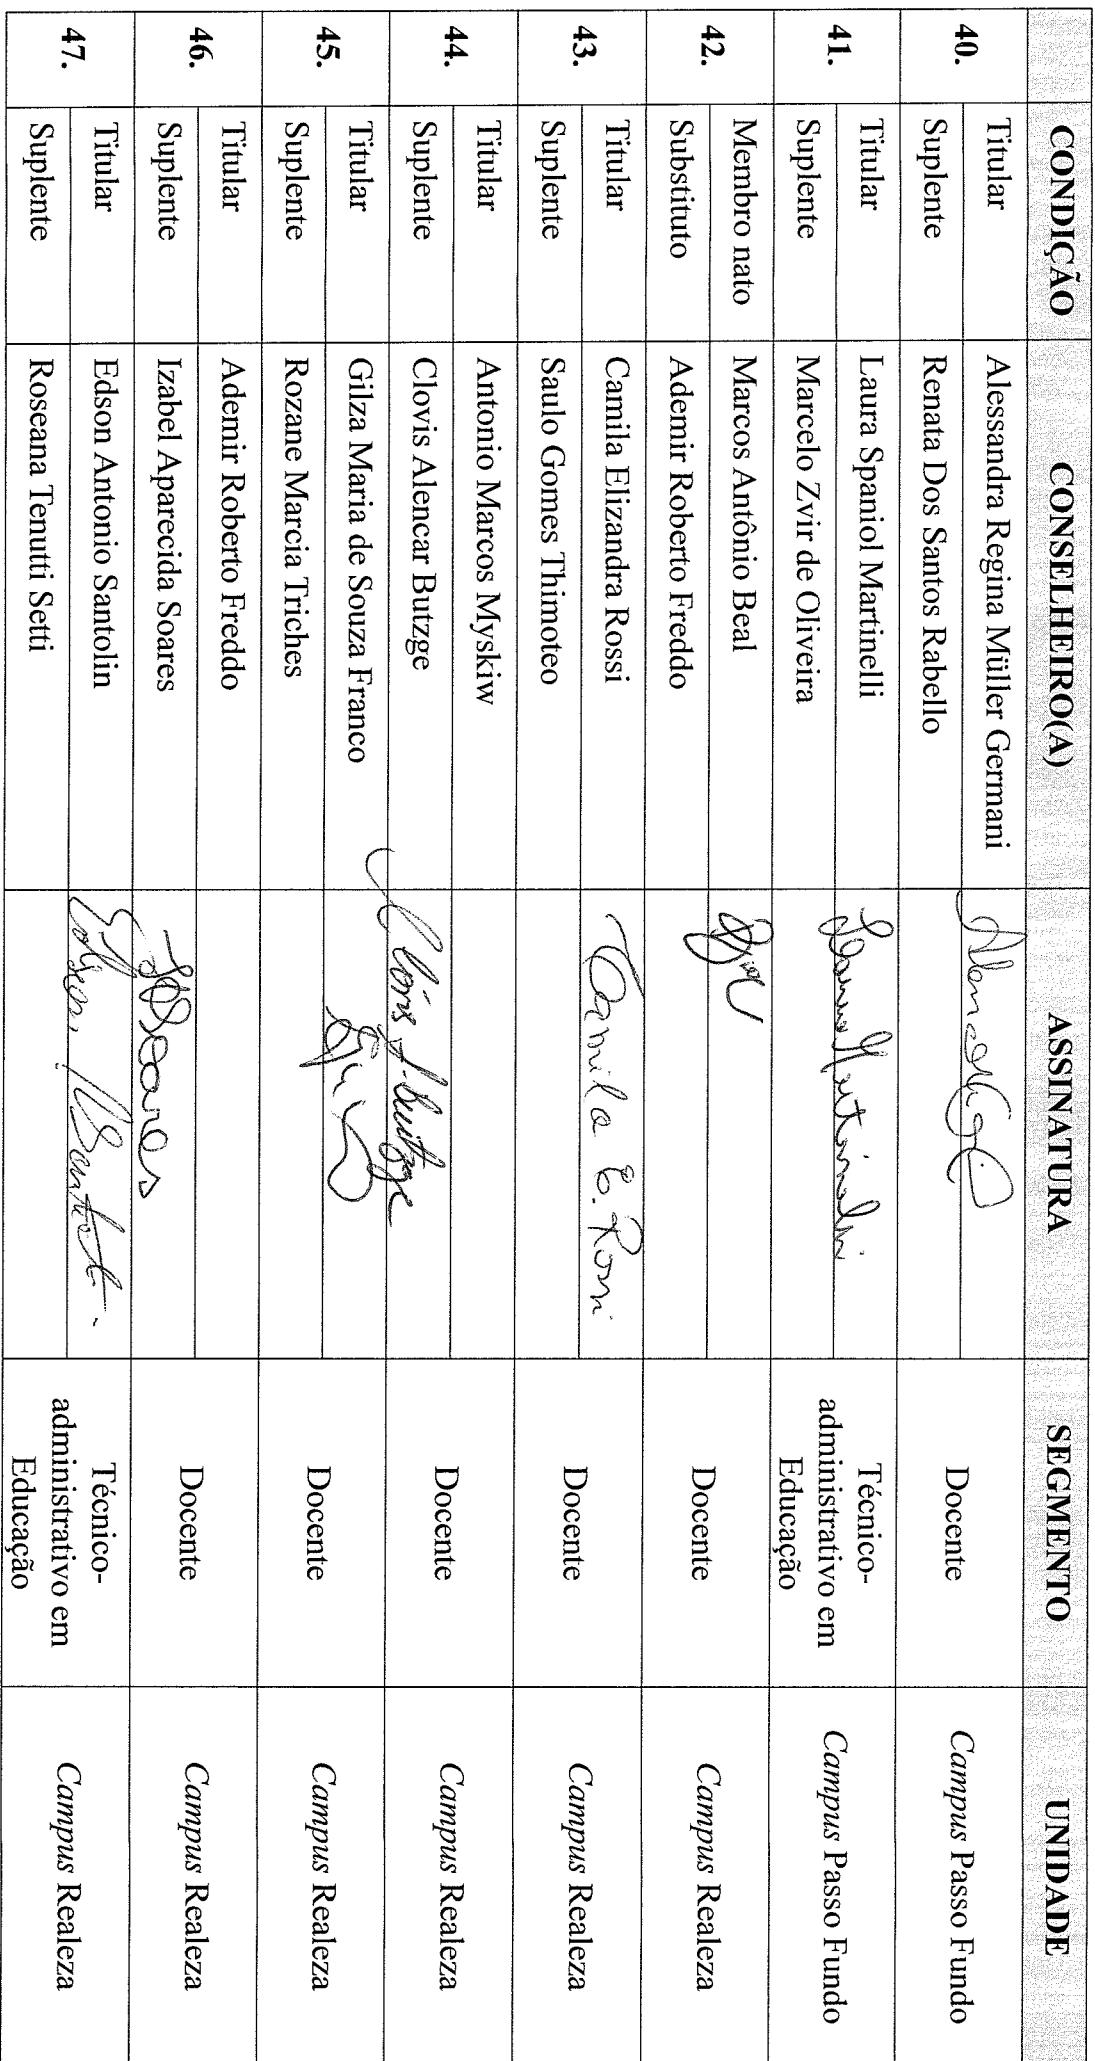 CONDIÇÃO CONSELHEIRO(A) ASSINATURA SEGMENTO UNIDADE
40. Titular Alessandra Regina Müller Germani Docente Campus Passo Fundo
Suplente Renata Dos Santos Rabello
41. Titular Laura Spaniol Martinelli Laura Martinelli Técnico-
administrativo em
Educação Campus Passo Fundo
Suplente Marcelo Zvir de Oliveira
42. Membro nato Marcos Antônio Beal Docente Campus Realeza
Substituto Ademir Roberto Freddo
43. Titular Camila Elizandra Rossi Camila E. Rossi Docente Campus Realeza
Suplente Saulo Gomes Thimoteo
44. Titular Antonio Marcos Myskiw Docente Campus Realeza
Suplente Clovis Alencar Butzge Clóvis A. Butzge
45. Titular Gilza Maria de Souza Franco Docente Campus Realeza
Suplente Rozane Marcia Triches
46. Titular Ademir Roberto Freddo Docente Campus Realeza
Suplente Izabel Aparecida Soares Soares
47. Titular Edson Antonio Santolin Edson Técnico-
administrativo em
Educação Campus Realeza
Suplente Roseana Tenutti Setti